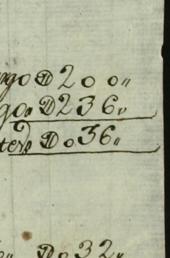 go D 200"
go. D 236"
ter. D 036"
D 032"